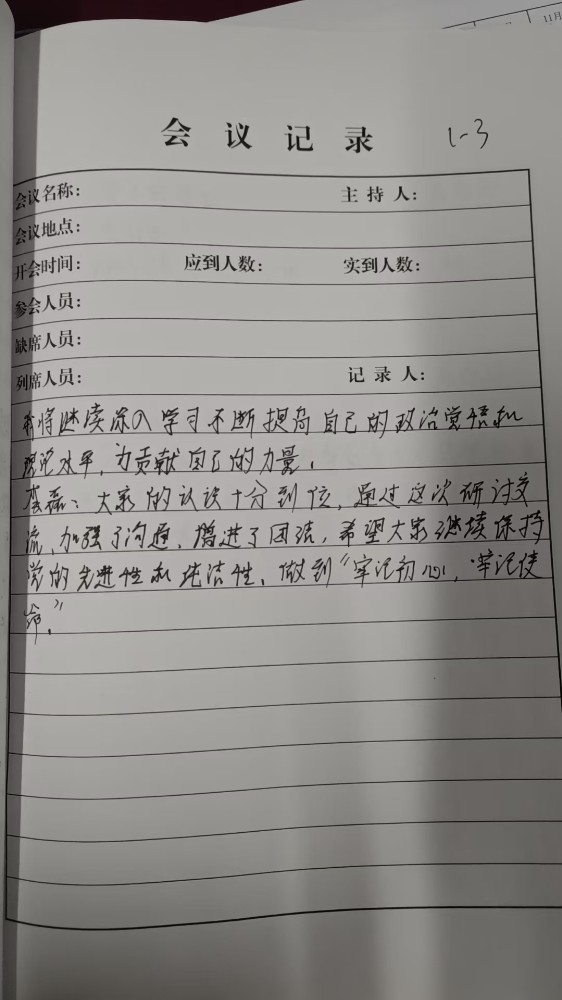 11月
会议记录 1-3
会议名称： 主持人：
会议地点：
开会时间： 应到人数： 实到人数：
参会人员：
缺席人员：
列席人员： 记录人：
我将继续深入学习不断提高自己的政治觉悟和
理论水平，为贡献自己的力量。
李磊：大家的认识十分到位，通过这次研讨交
流，加强了沟通，增进了团结，希望大家继续保持
党的先进性和纯洁性，做到“牢记初心，牢记使
命。”